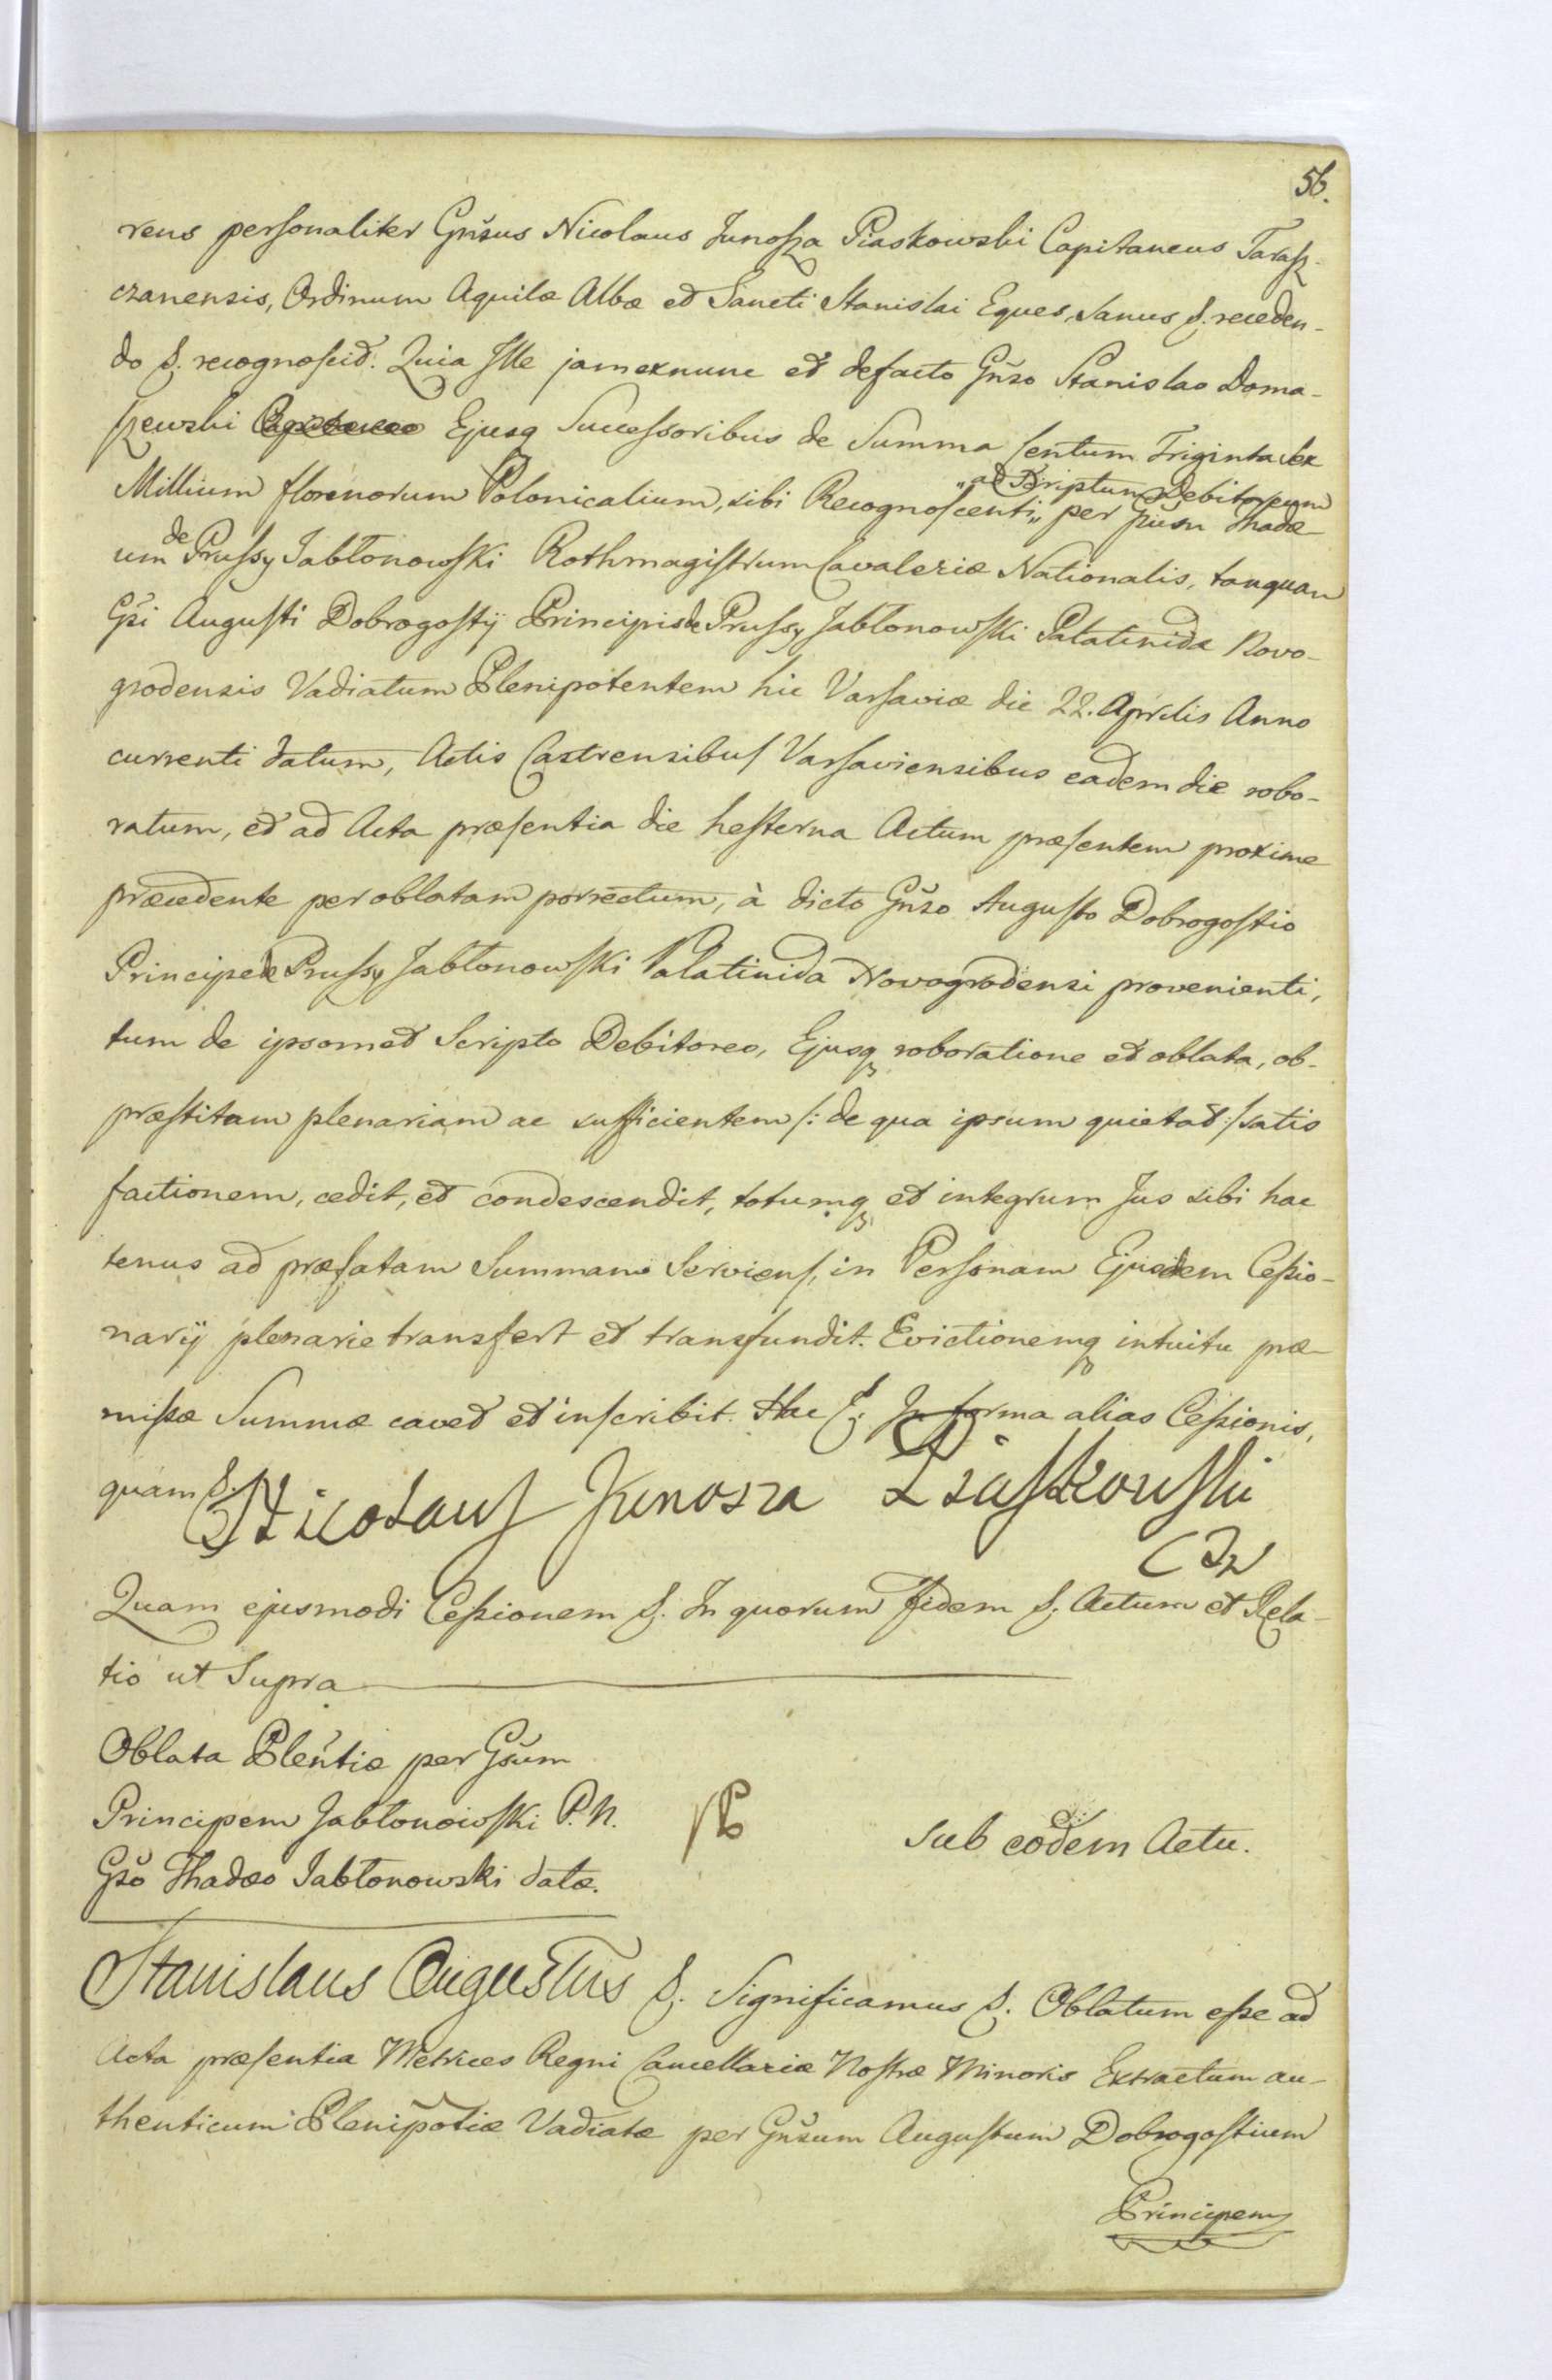 56.
rens personaliter Gnsus Nicolaus Junosza Piaskowski Capitaneus Tarasz-
czanensis, Ordinum Aquilæ Albæ et Sancti Stanislai Eques, Sanus &. receden-
do &. recognoscit. Quia Ille jamexnunc et defacto Gnso Stanislao Doma-
szewski Ejusq Successoribus de Summa Centum Triginta sex
„ad Scriptum Debitoreum
Millium florenorum Polonicalium, sibi Recognoscenti„ per Gsum Thadæ-
um de Prussy Jabłonowski Rothmagistrum Cavaleriæ Nationalis, tanquam
Gsi Augusti Dobrogostÿ Principis de Prussy Jabłonowski Palatinida Novo-
grodensis Vadiatum Plenipotentem hic Varsaviæ die 22. Aprilis Anno
currenti datum, Actis Castrensibus Varsaviensibus eadem die robo-
ratum, et ad Acta præsentia die hesterna Actum præsentem proxime
præcedente per oblatam porrectum, à dicto Gnso Augusto Dobrogostio
Principe de Prussy Jabłonowski Palatinida Novogrodensi provenienti,
tum de ipsomet Scripto Debitoreo, Ejusq roboratione et oblata, ob-
præstitam plenariam ac sufficientem /: de qua ipsum quietat :/ satis
factionem, cedit, et condescendit, totumq et integrum Jus sibi hac
tenus ad præfatam Summam Serviens, in Personam Ejusdem Cessio-
narÿ plenarie transfert et transfundit. Evictionemq intuitu præ-
missæ Summæ cavet et inscribit. Hac &. In forma alias Cessionis,
quam &.
Nicolaus Junosza Piaskowski
Quam ejusmodi Cessionem &. In quorum Fidem &. Actum et Rela-
tio ut Supra
Oblata Plentiæ per Gsum
Principem Jabłonowski P. N.
Gso Thadæo Jabłonowski datæ.
Sub eodem Actu.
Stanislaus Augustus &. Significamus &. Oblatum esse ad
Acta præsentia Metrices Regni Cancellariæ Nostræ Minoris Extractum au-
thenticum Plenipotiæ Vadiatæ per Gnsum Augustum Dobrogostium
Principem